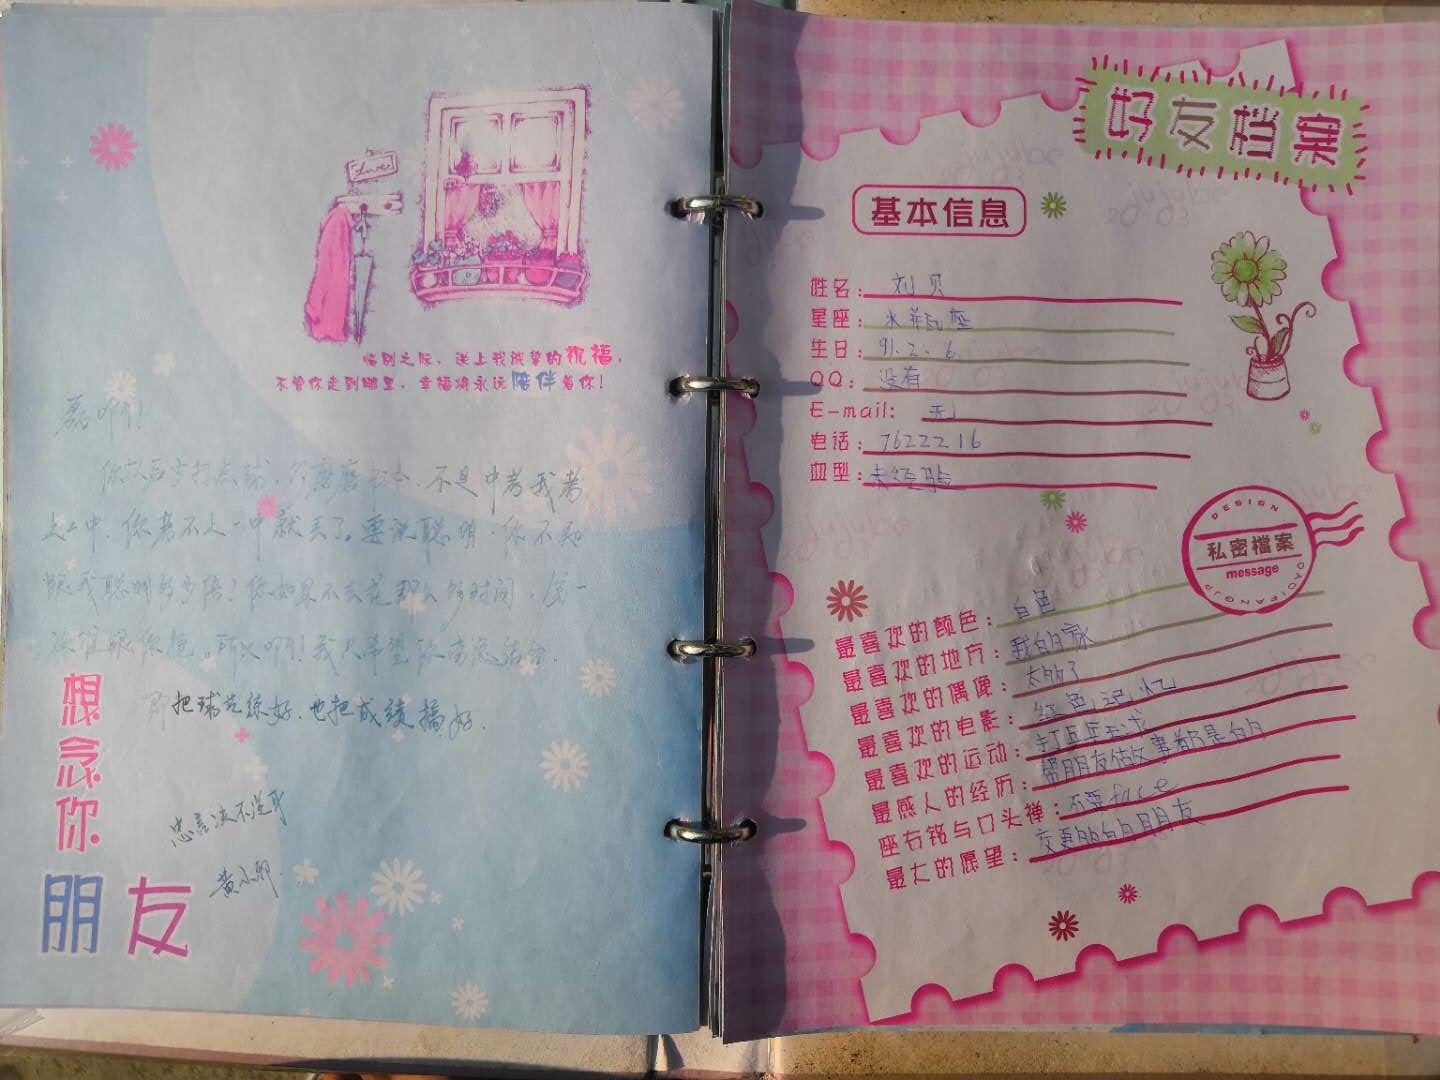 Love
临别之际，送上我诚挚的祝福，
不管你走到哪里，幸福将永远陪伴着你！
磊啊！
你以后少打点球，多磨磨书本，不是中考我考
上二中，你考不上一中就丢了。要说聪明，你不知
跟我聪明多少倍！你如果不去花那么多时间，
所以啊！我只希望
即把球先练好，也把成绩搞好．
忠言决不逆耳
想念你
朋友
好友档案
基本信息
姓名：刘贝
星座：水瓶座
生日：91.2.6
QQ：没有
E-mail：无
电话：7622216
血型：未经验
DESIGN
私密檔案
message
最喜欢的颜色：白色
最喜欢的地方：我的家
最喜欢的偶像：太多了
最喜欢的电影：红色记忆
最喜欢的运动：打乒乓球
最感人的经历：帮朋友做事都是的
座右铭与口头禅：不要face
最大的愿望：交更多的朋友